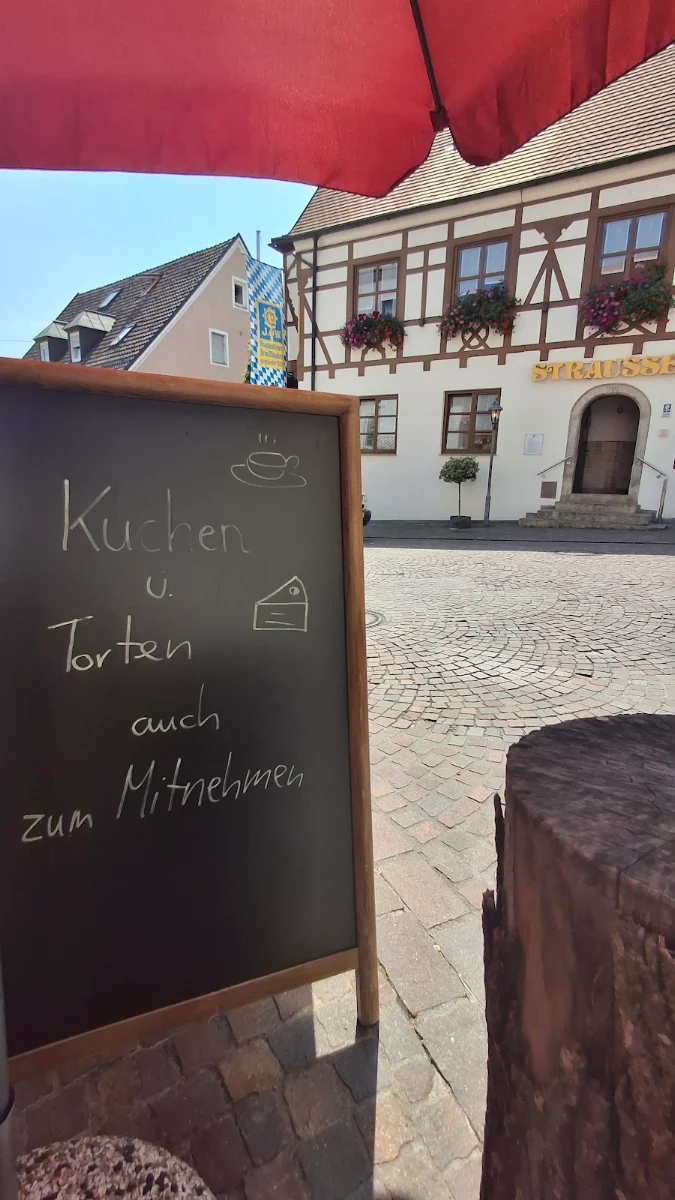 STRAUSSE
Kuchen
u.
Torten
auch
zum Mitnehmen